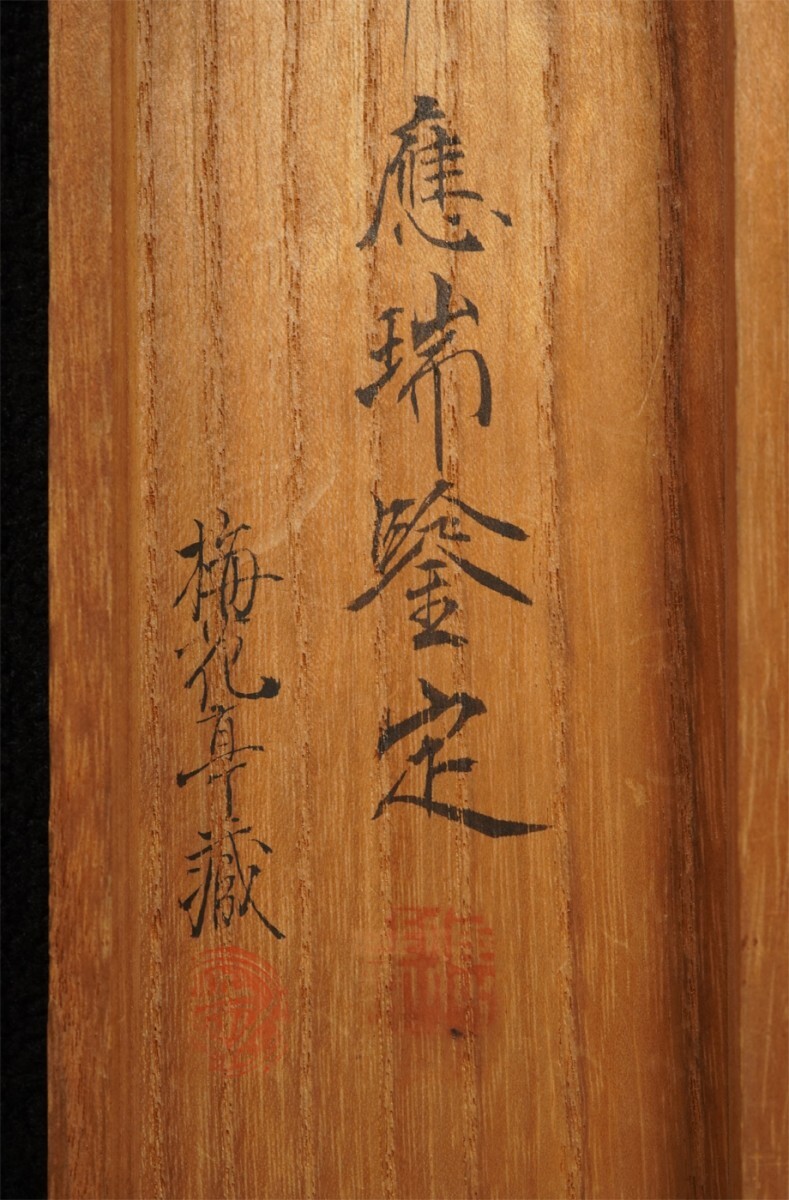 應瑞鑒定
梅花亭藏